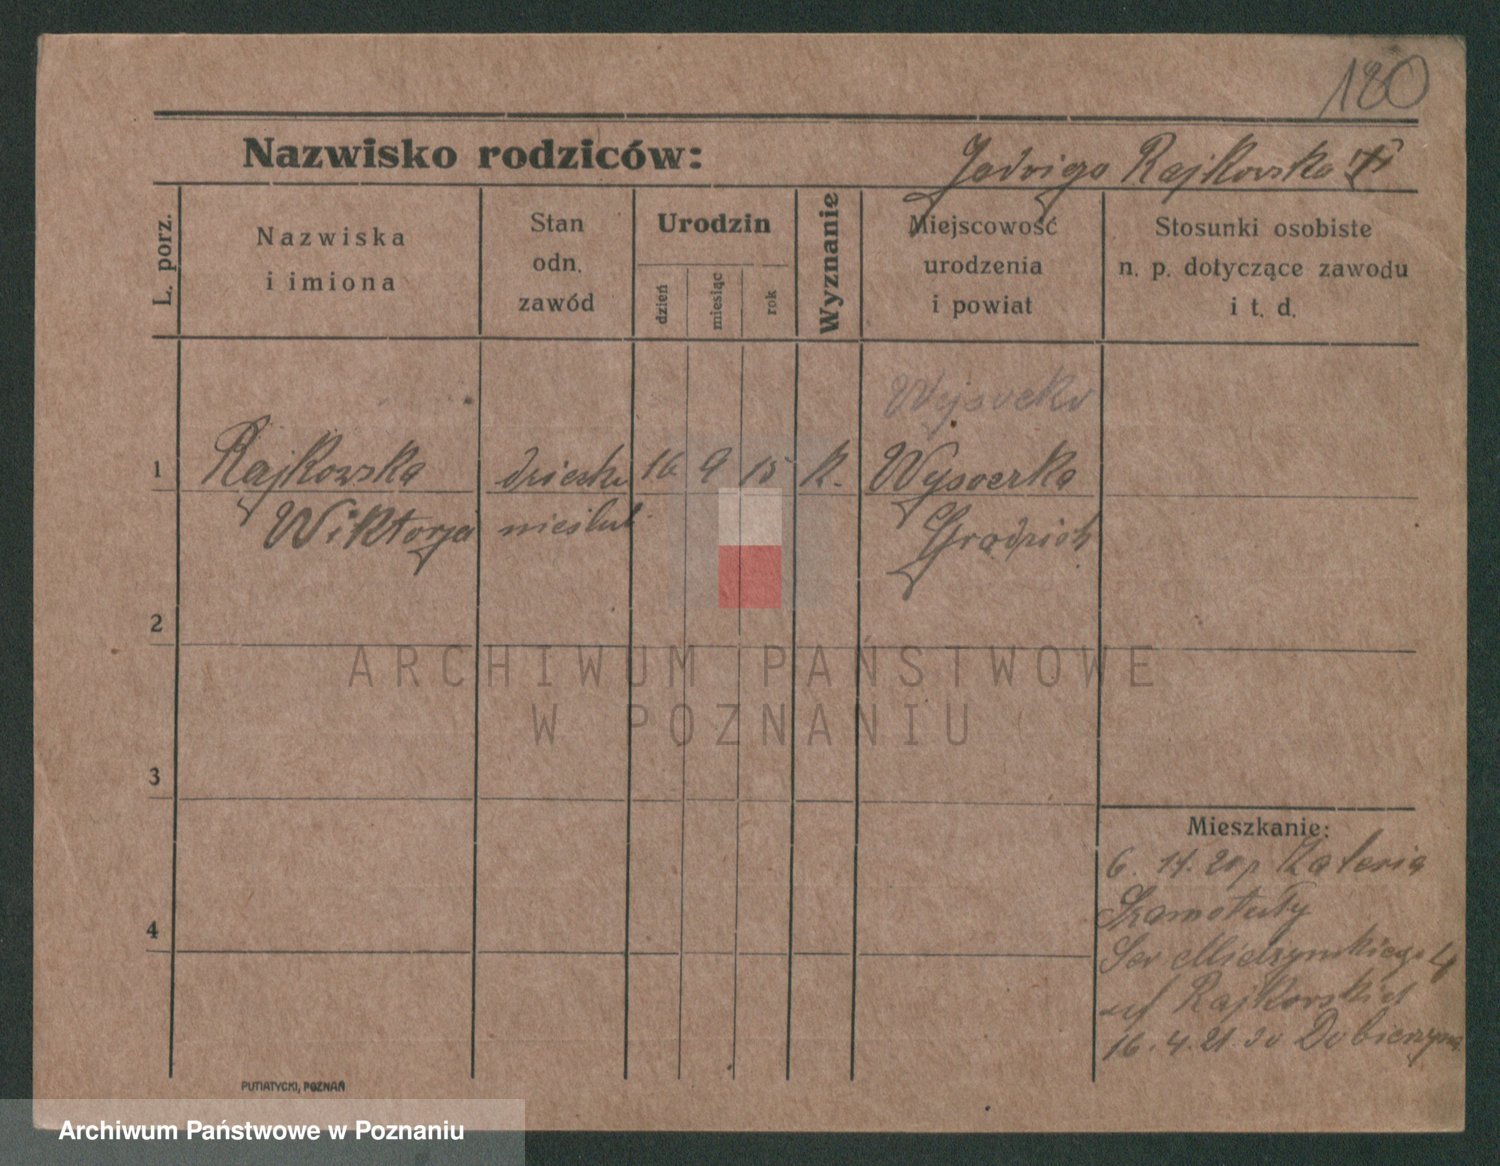 180
Nazwisko rodziców: Jadwiga Rajkowska
L. porz.
Nazwiska
i imiona
Stan
odn.
zawód
Urodzin
dzień
miesiąc
rok
Wyznanie
Miejscowość
urodzenia
i powiat
Stosunki osobiste
n. p. dotyczące zawodu
i t. d.
Wysocko
1 Rajkowska dziecko 16 9 15 k. Wysoczka
Wiktorja nieślub. Grodzisk
2
ARCHIWUM PAŃSTWOWE
W POZNANIU
3
Mieszkanie:
6. 11. 20 p
Szamotuły
4
Mielżyńskiego 4
Rajkowskich
16. 4. 21.
PUTIATYCKI, POZNAŃ
Archiwum Państwowe w Poznaniu